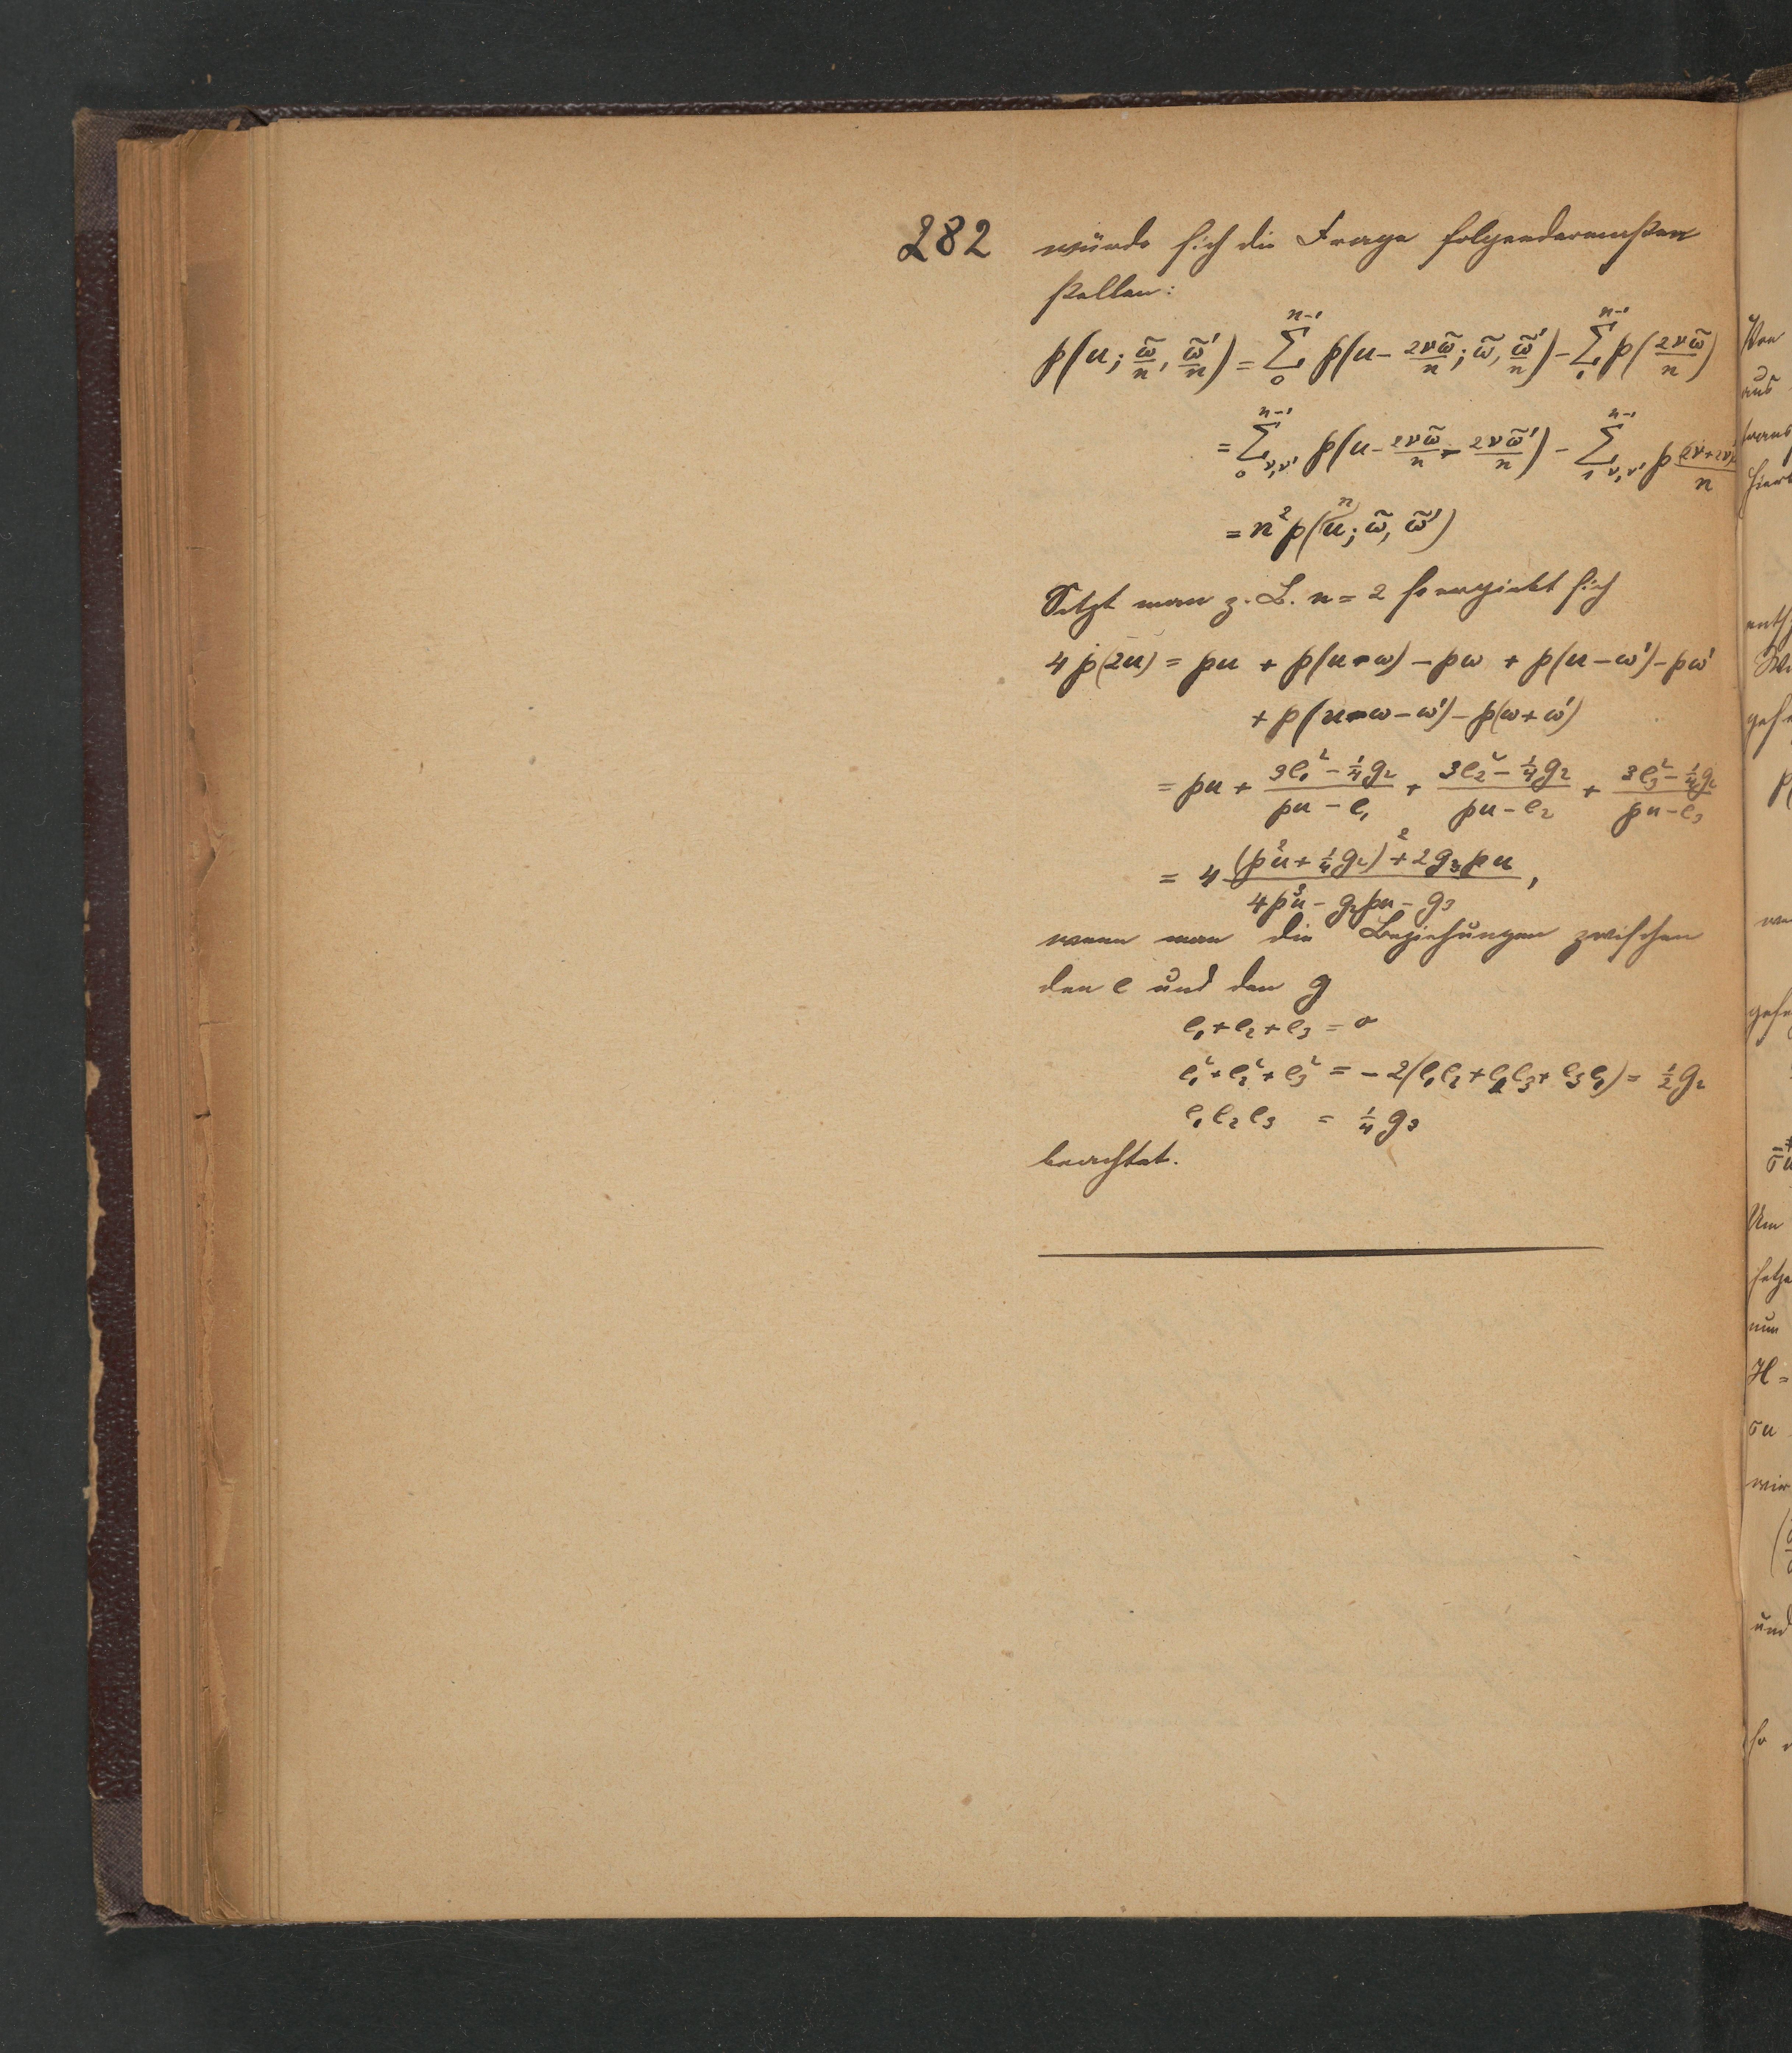 282
würde sich die Frage folgendermaßen
stellen:
℘(u; ω̃/n, ω̃'/n) = ∑₀ⁿ⁻¹ ℘(u - 2νω̃/n; ω̃, ω̃'/n) - ∑₁ⁿ⁻¹ ℘(2νω̃/n)
= ∑₀ ν,ν'ⁿ⁻¹ ℘(u - 2νω̃/n - 2νω̃'/n) - ∑₁ ν,ν'ⁿ⁻¹ ℘ (2ν+2ν')/n
= n²℘(nu; ω̃, ω̃')
Setzt man z. B. n = 2 so ergiebt sich
4℘(2u) = ℘u + ℘(u-ω) - ℘ω + ℘(u-ω') - ℘ω'
+ ℘(u-ω-ω') - ℘(ω+ω')
= ℘u + (3e₁² - ¼g₂)/(℘u - e₁) + (3e₂² - ¼g₂)/(℘u - e₂) + (3e₃² - ¼g₂)/(℘u - e₃)
= 4 ((℘²u + ¼g₂)² + 2g₃℘u)/(4℘³u - g₂℘u - g₃),
wenn man die Beziehungen zwischen
den e und den g
e₁+e₂+e₃ = 0
e₁²+e₂²+e₃² = -2(e₁e₂+e₂e₃+e₃e₁) = ½g₂
e₁e₂e₃ = ¼g₃
beachtet.